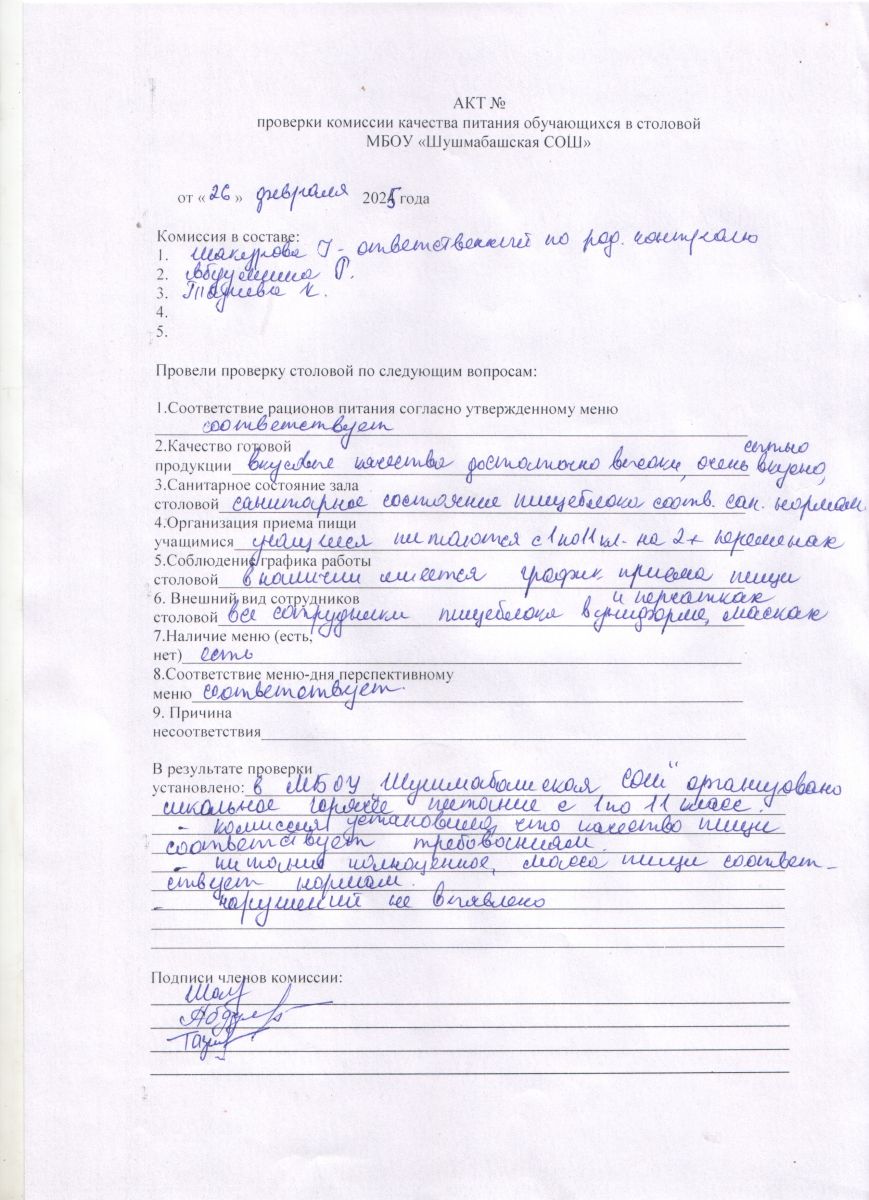 АКТ №
проверки комиссии качества питания обучающихся в столовой
МБОУ «Шушмабашская СОШ»
от «26» февраля 2025 года
Комиссия в составе:
1. Шакурова Г - ответственный по род. контролю
2. Абдуллина Р.
3. Тазиева К.
4.
5.
Провели проверку столовой по следующим вопросам:
1.Соответствие рационов питания согласно утвержденному меню
соответствует
2.Качество готовой сытно
продукции вкусовые качества достаточно высоки, очень вкусно,
3.Санитарное состояние зала
столовой санитарное состояние пищеблока соотв. сан. нормам
4.Организация приема пищи
учащимися учащиеся питаются с 1 по 11 кл. на 2х переменах
5.Соблюдение графика работы
столовой в наличии имеется график приема пищи
6. Внешний вид сотрудников и перчатках
столовой все сотрудники пищеблока в униформе, масках
7.Наличие меню (есть,
нет) есть
8.Соответствие меню-дня перспективному
меню соответствует.
9. Причина
несоответствия
В результате проверки
установлено: в МБОУ „Шушмабашская СОШ" организовано
школьное горячее питание с 1 по 11 класс.
- комиссия установила, что качество пищи
соответствует требованиям.
- питание полноценное, масса пищи соответ-
ствует нормам.
- нарушений не выявлено
Подписи членов комиссии:
Шак
Абдул
Тази